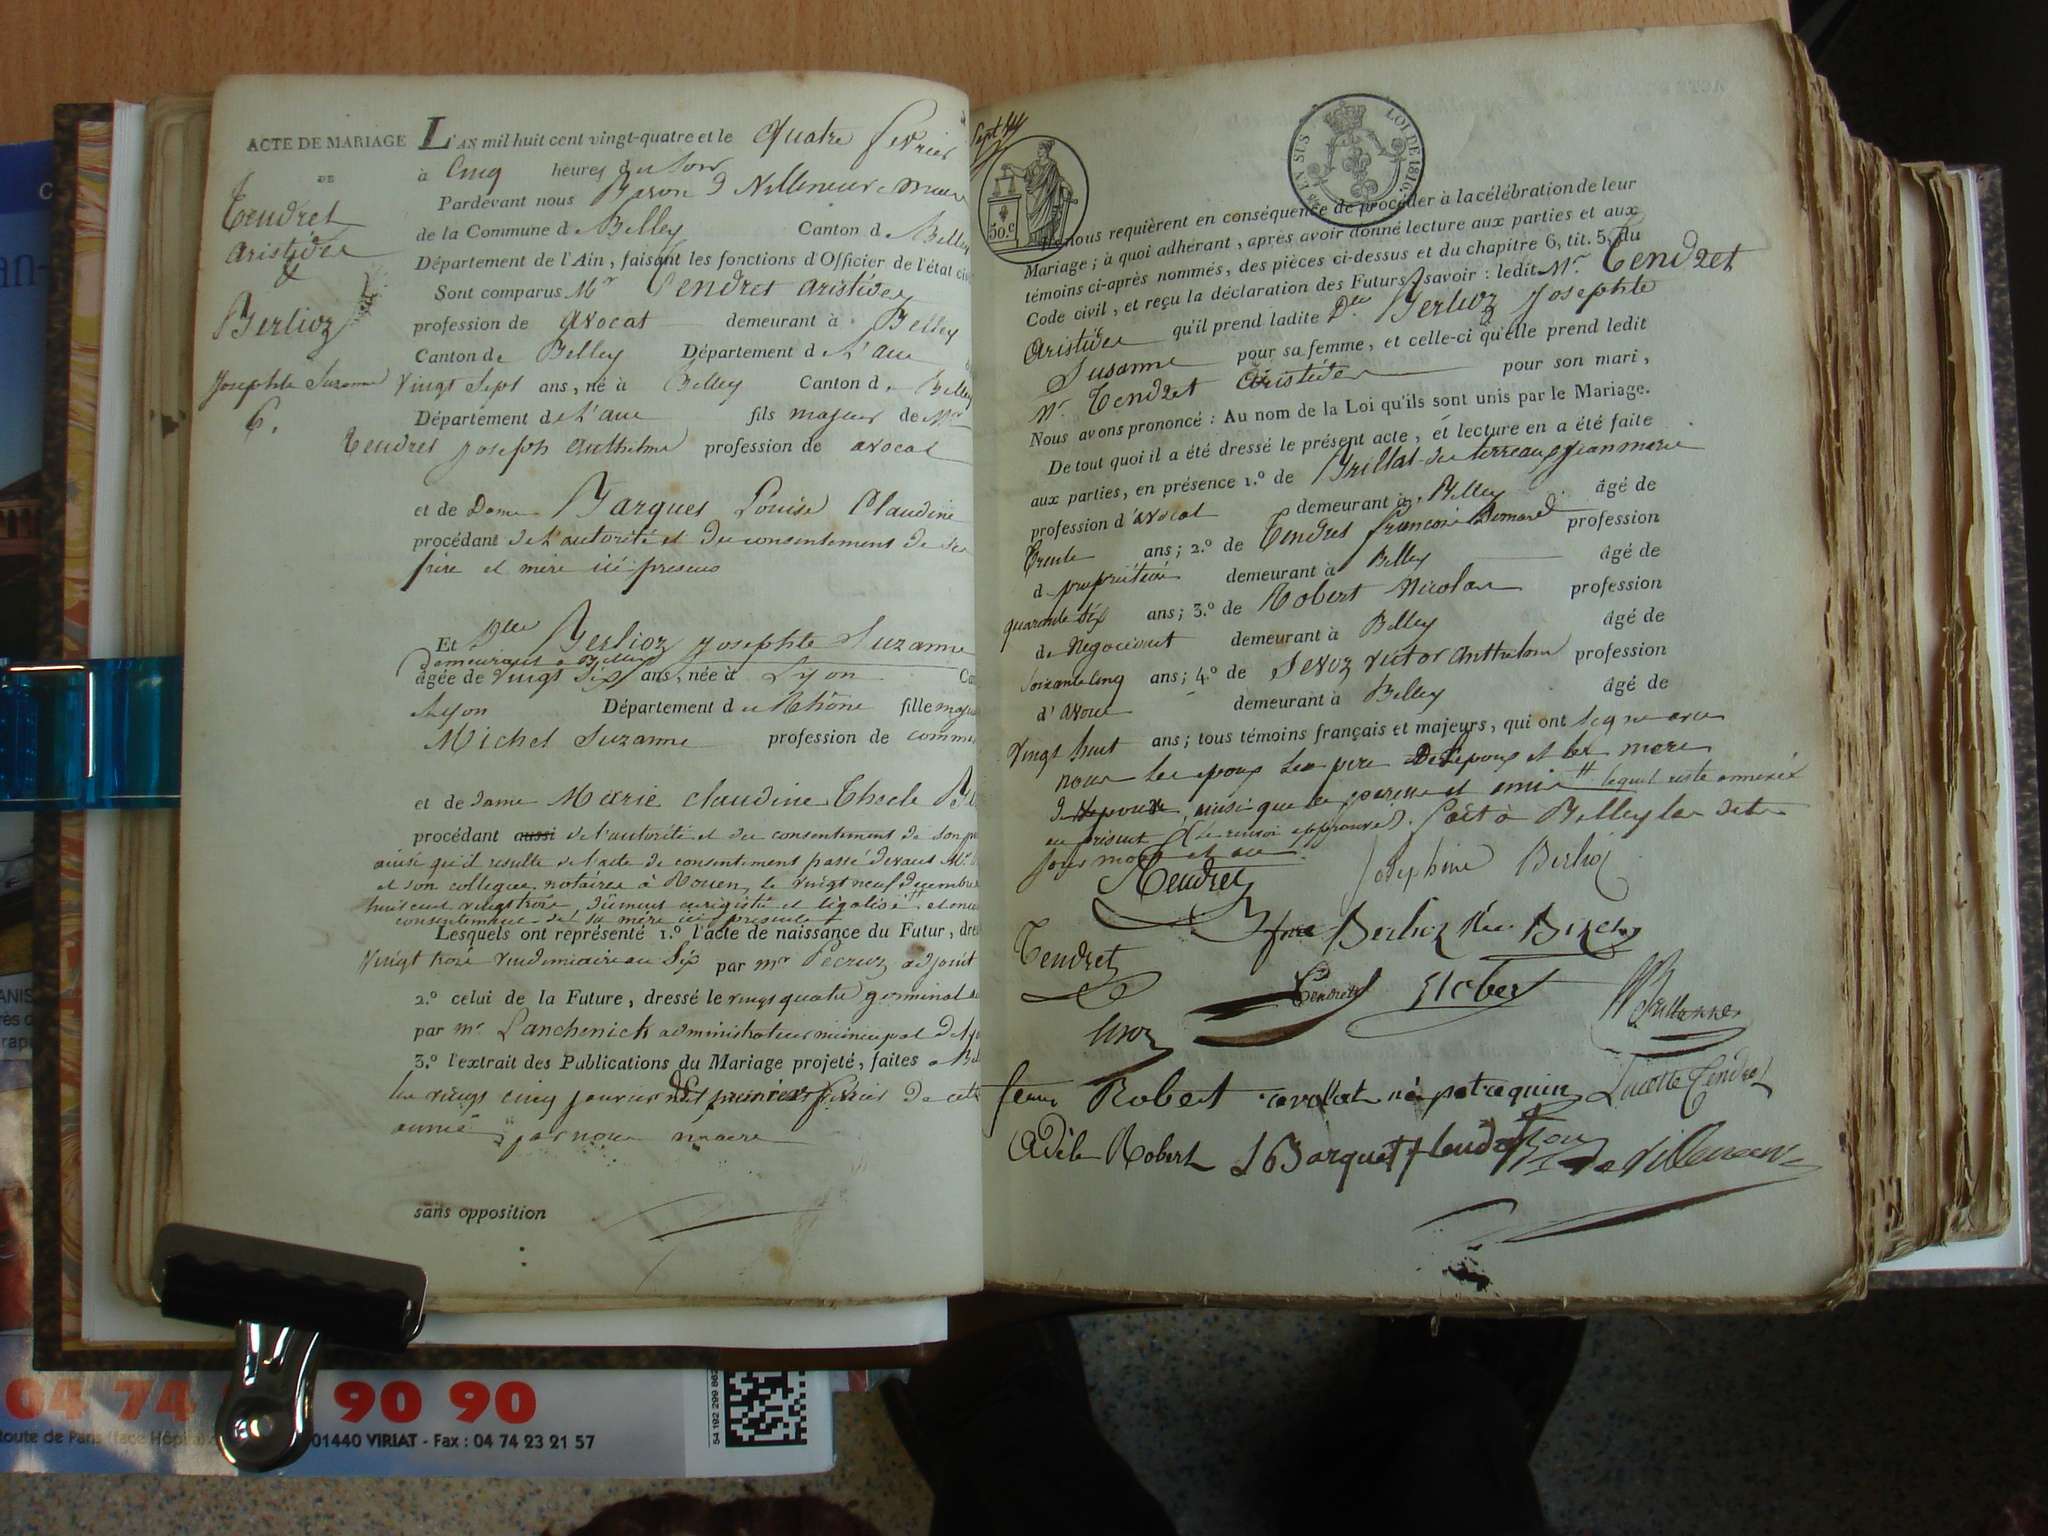 ACTE DE MARIAGE
DE
Tendret
aristide
&
Berlioz
Josephte Suzanne
6.
L'AN mil huit cent vingt-quatre et le quatre fevrier
à Cinq heures du soir
Pardevant nous Baron d maire
de la Commune d Belley Canton d Belley
Département de l'Ain, faisant les fonctions d'Officier de l'état civ
Sont comparus Mr Tendret aristide
profession de avocat demeurant à Belley
Canton de Belley Département d
vingt sept ans, né à Belley Canton d Belley
Département de fils majeur de Mr
Tendret Joseph anthelme profession de avocat
et de Dame Barquet Louise Claudine
procédant de l'autorité et du consentement de ses
père et mère ici presens
Et Dlle Berlioz Josephte Suzanne
demeurant a Belley
âgée de vingt six ans, née à Lyon Ca
Lyon Département du Rhône fille maj
Michel Suzanne profession de comm
et de dame Marie Claudine Thecle
procédant aussi de l'autorité et du consentement de son
ainsi qu'il resulte de l'acte de consentement passé devant Mr
et son collegue notaires à Rouen le vingt neuf decembre
huit cent vingt trois, dûment enregistré et légalisé et
consentement de sa mère ici presente
Lesquels ont représenté 1.º l'acte de naissance du Futur, dre
vingt trois vendemiaire an six par mr adjoint
2.º celui de la Future, dressé le vingt quatre germinal
par mr Lanchenick administrateur municipal de
3.º l'extrait des Publications du Mariage projeté, faites a Bel
les vingt cinq janvier et premier fevrier de cette
année par nous maire
sans opposition
Sept
50.c
EN SUS
LOI DE 1816.
nous requièrent en conséquence de procéder à la célébration de leur
Mariage; à quoi adhérant, après avoir donné lecture aux parties et aux
témoins ci-après nommés, des pièces ci-dessus et du chapitre 6, tit. 5, du
Code civil, et reçu la déclaration des Futurs, savoir : ledit Mr. Tendret
Aristide qu'il prend ladite Dlle Berlioz Josephte
Susanne pour sa femme, et celle-ci qu'elle prend ledit
Mr. Tendret Aristide pour son mari,
Nous avons prononcé : Au nom de la Loi qu'ils sont unis par le Mariage.
De tout quoi il a été dressé le présent acte, et lecture en a été faite
aux parties, en présence 1.º de Brillat des terreaux jean marie
profession d'avocat demeurant à Belley âgé de
trente ans; 2.º de Tendret françois Bernard profession
d propriétaire demeurant à Belley âgé de
quarante six ans; 3.º de Robert Nicolas profession
de Négociant demeurant à Belley âgé de
soixante cinq ans; 4.º de Sevoz victor anthelme profession
d'avoué demeurant à Belley âgé de
vingt huit ans; tous témoins français et majeurs, qui ont signé avec
nous les epoux les père de l'epoux et les mere
d ainsi que les parens et amis lequel reste annexée
au présent (le renvoi approuvé). fait à Belley les dits
jour mois et an.
Tendret
Josephine Berlioz
Berlioz née
Tendret
Tendret
Robert
Sevoz
femme Robert née
Lucotte Tendret
Adèle Robert
Barquet Tendret
Bon de Villeneuve
04 74 90 90
Route de Paris (face Hôp
01440 VIRIAT - Fax : 04 74 23 21 57